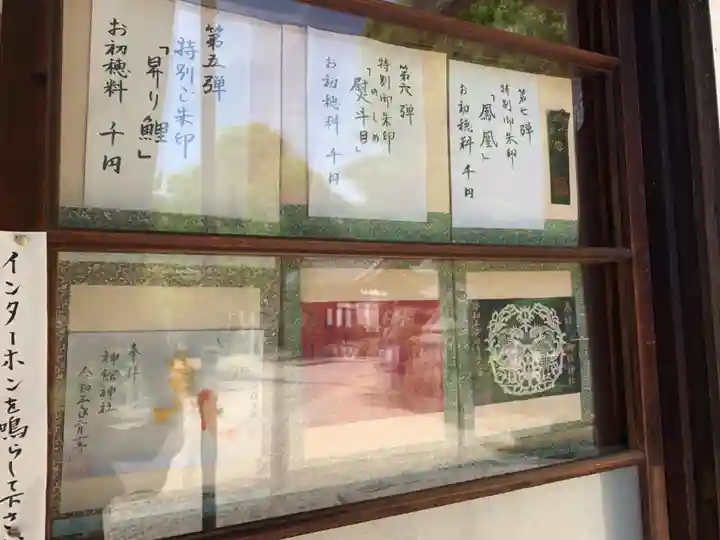 第七弾
特別御朱印
「鳳凰」
お初穂料 千円
第六弾
特別御朱印
「熨斗目」
のしめ
お初穂料 千円
第五弾
特別ご朱印
「昇り鯉」
お初穂料 千円
奉拝
神館神社
インターホンを鳴らして下さい